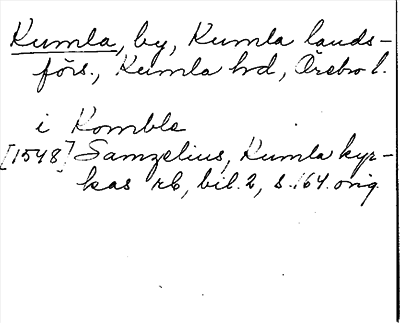 Kumla, by, Kumla lands-
förs., Kumla hd, Örebro l.
i Kombla
[1548] Samzelius, Kumla kyr-
kas rb, bil. 2, s. 164. orig.